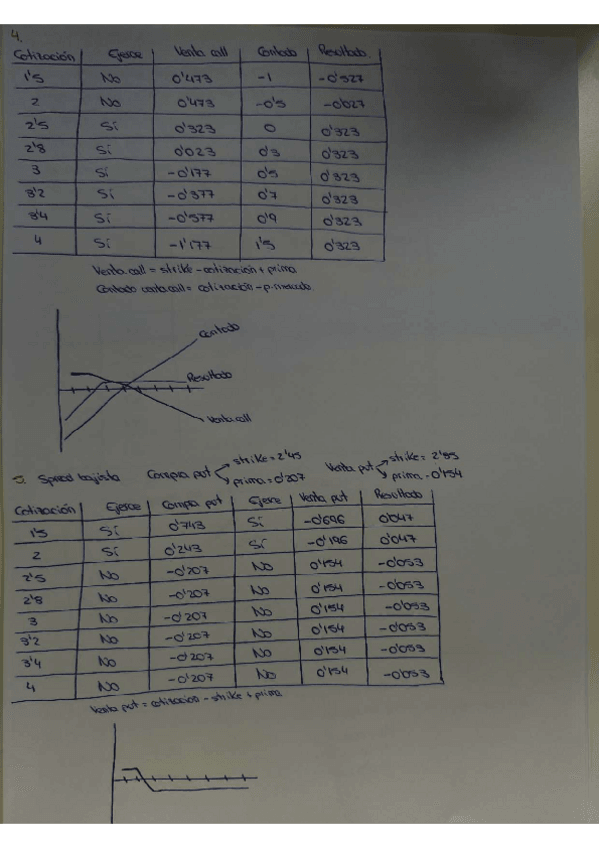 4.
Cotización Ejerce Venta call Contado Resultado.
1'5 No 0'473 -1 -0'527
2 No 0'473 -0'5 -0'027
2'5 Sí 0'323 0 0'323
2'8 Sí 0'023 0'3 0'323
3 Sí -0'177 0'5 0'323
3'2 Sí -0'377 0'7 0'323
3'4 Sí -0'577 0'9 0'323
4 Sí -1'177 1'5 0'323
Venta call = strike - cotización + prima
Contado venta call = cotización - p. mercado
Contado
Resultado
Venta call
5. Spread bajista Compra put strike = 2'45 prima = 0'207 Venta put strike = 2'35 prima = 0'154
Cotización Ejerce Compra put Ejerce Venta put Resultado
1'5 Sí 0'743 Sí -0'696 0'047
2 Sí 0'243 Sí -0'196 0'047
2'5 No -0'207 No 0'154 -0'053
2'8 No -0'207 No 0'154 -0'053
3 No -0'207 No 0'154 -0'053
3'2 No -0'207 No 0'154 -0'053
3'4 No -0'207 No 0'154 -0'053
4 No -0'207 No 0'154 -0'053
Venta put = cotización - strike + prima